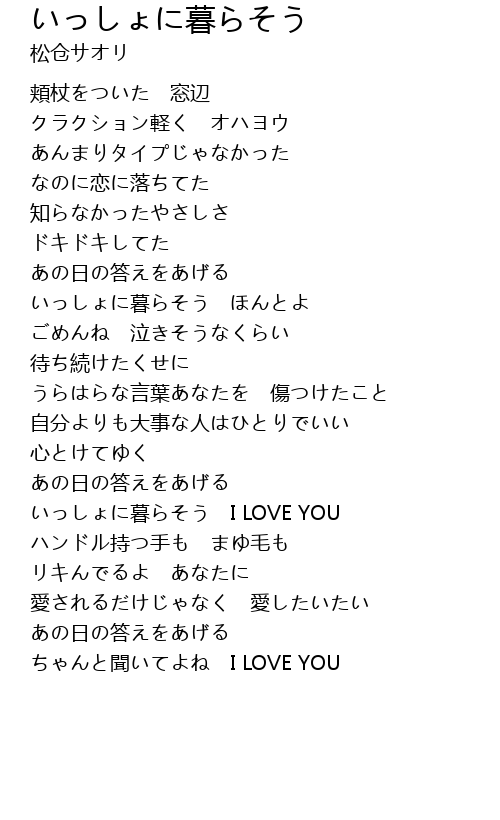 いっしょに暮らそう
松仓サオリ
頬杖をついた　窓辺
クラクション軽く　オハヨウ
あんまりタイプじゃなかった
なのに恋に落ちてた
知らなかったやさしさ
ドキドキしてた
あの日の答えをあげる
いっしょに暮らそう　ほんとよ
ごめんね　泣きそうなくらい
待ち続けたくせに
うらはらな言葉あなたを　傷つけたこと
自分よりも大事な人はひとりでいい
心とけてゆく
あの日の答えをあげる
いっしょに暮らそう　I LOVE YOU
ハンドル持つ手も　まゆ毛も
リキんでるよ　あなたに
愛されるだけじゃなく　愛したいたい
あの日の答えをあげる
ちゃんと聞いてよね　I LOVE YOU